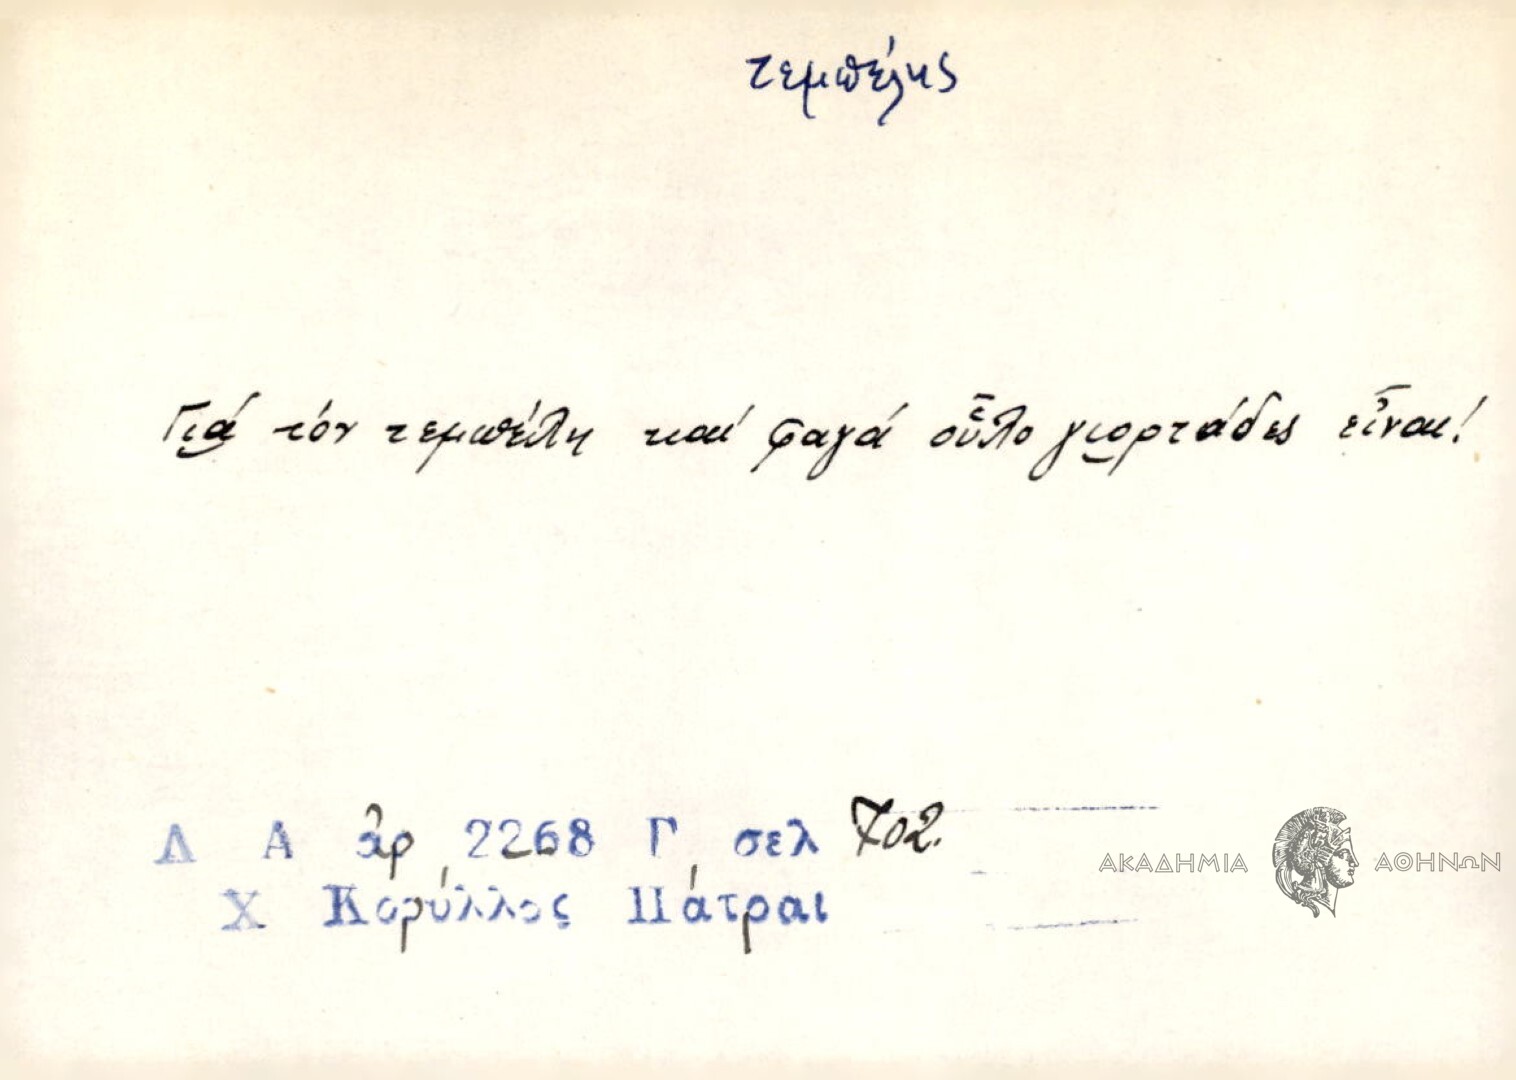 τεμπέλης
Γιά τόν τεμπέλη καί φαγά οὗλο γιορτάδες εἶναι!
Λ Α ἀρ 2268 Γ, σελ 702.
Χ Κορύλλος Πάτραι
ΑΚΑΔΗΜΙΑ ΑΘΗΝΩΝ